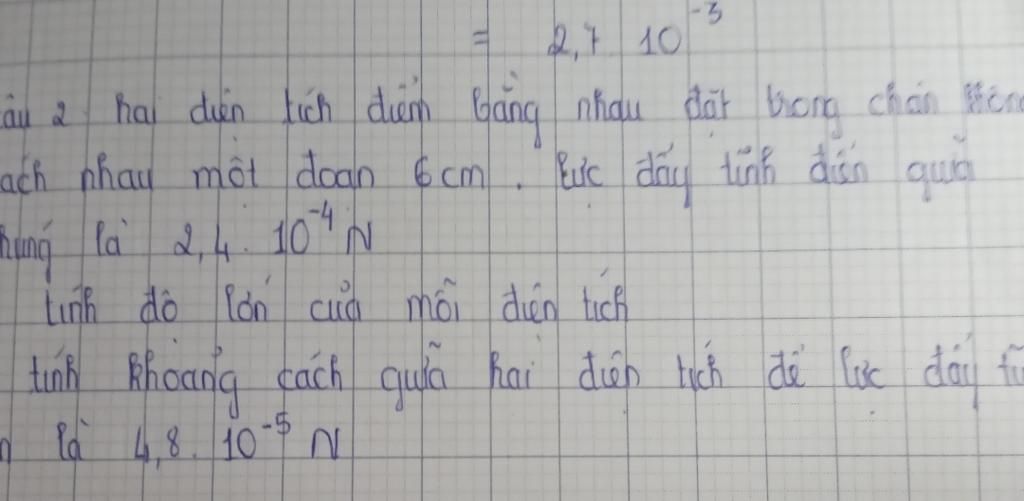 = 2,7 10⁻³
âu 2 hai điện tích điểm bằng nhau đặt trong chân
ách nhau một đoạn 6cm. lực đẩy tĩnh điện giữa
húng là 2,4. 10⁻⁴ N
tính độ lớn của mỗi điện tích
tính khoảng cách giữa hai điện tích để lực đẩy tĩ
n là 4,8. 10⁻⁵ N